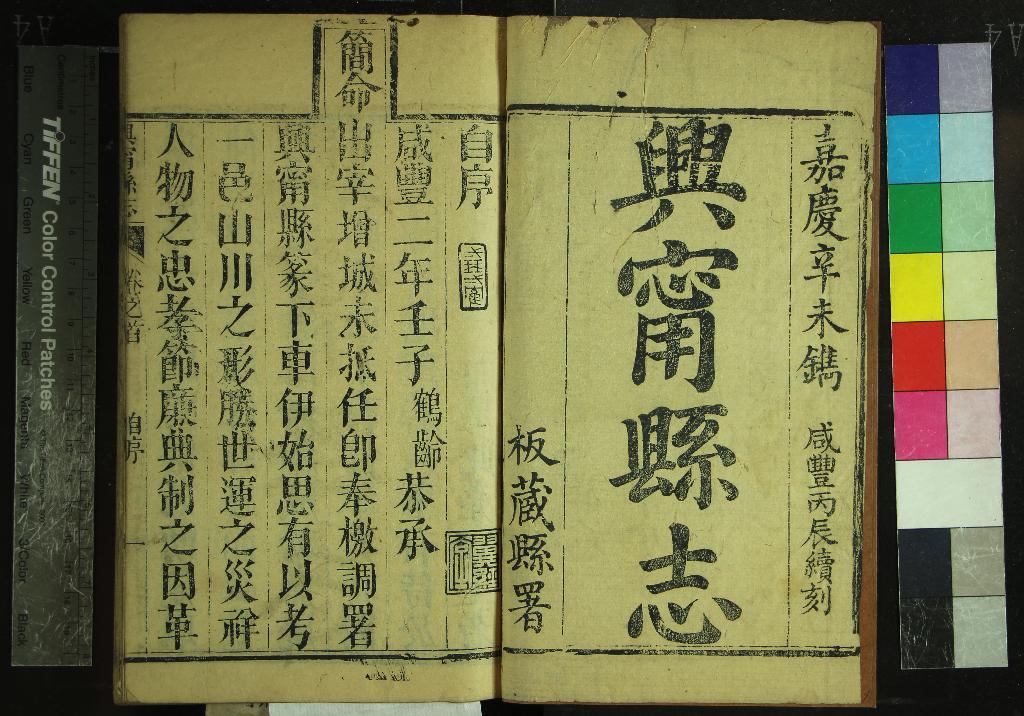 嘉慶辛未鐫 咸豐丙辰續刻
興甯縣志
板藏縣署
自序
咸豐二年壬子鶴齡恭承
簡命出宰增城未抵任卽奉檄調署
興甯縣篆下車伊始思有以考
一邑山川之形勝世運之災祥
人物之忠孝節廉典制之因革
興甯縣志 卷之首 自序 一
TIFFEN Color Control Patches
Blue Cyan Green Yellow Red Magenta White 3/Color Black
Centimetres
A4
A4